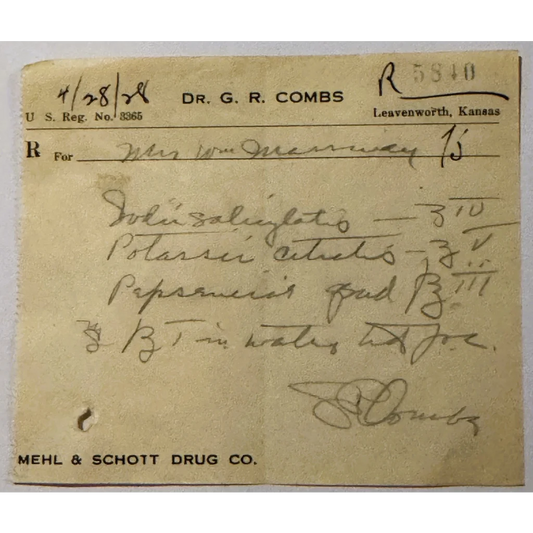 4/28/28 DR. G. R. COMBS R 5840
U S. Reg. No. 3365 Leavenworth, Kansas
R For Mrs Wm
Sodii salicylatis — ʒ IV
Potassii citratis — ʒ V
qsad ℥ III
℥ I in water t.i.d. p.c.
Combs
MEHL & SCHOTT DRUG CO.